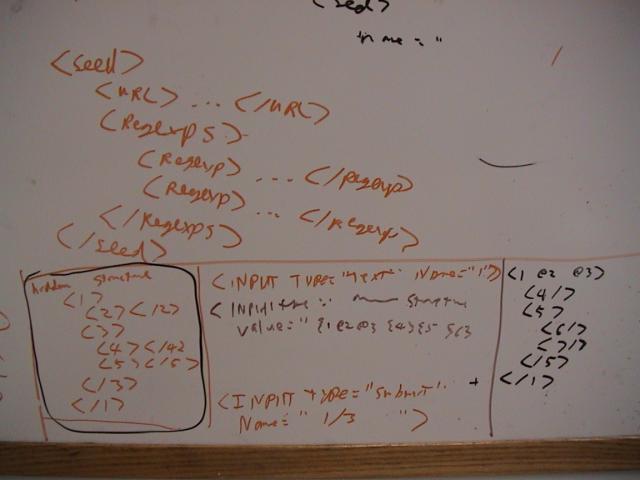 <seed>
name = "
<seed>
<URL> ... </URL>
<Regexps>
<Regexp> ... </Regexp>
<Regexp> ... </Regexp>
</Regexps>
</seed>
hidden structure
<1>
<2></2>
<3>
<4></4>
<5></5>
</3>
</1>
<INPUT TYPE="text" Name="1">
<INPUT type structure
value="{1 @2 @3 {4}{5
<INPUT type="submit"
Name=" 1/3 ">
<1 @2 @3>
<4/>
<5>
<6/>
<7/>
</5>
</1>